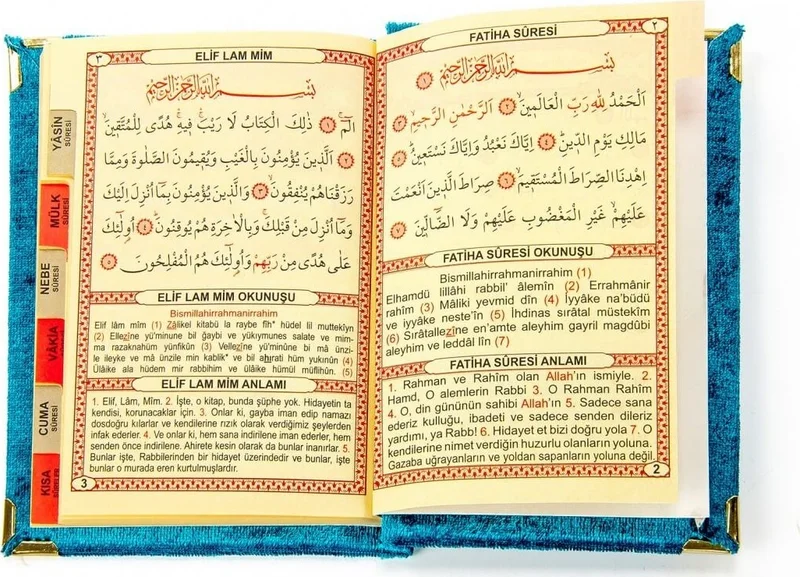 ٢
FATİHA SÛRESİ
بِسْــــــمِ اللهِ الرَّحْمٰنِ الرَّحِيمِ ١
اَلْحَمْدُ لِلّٰهِ رَبِّ الْعَالَمِينَۙ ٢ اَلرَّحْمٰنِ الرَّحِيمِۙ ٣
مَالِكِ يَوْمِ الدّ۪ينِۜ ٤ اِيَّاكَ نَعْبُدُ وَاِيَّاكَ نَسْتَع۪ينُۜ ٥
اِهْدِنَا الصِّرَاطَ الْمُسْتَق۪يمَۙ ٦ صِرَاطَ الَّذ۪ينَ اَنْعَمْتَ
عَلَيْهِمْۙ غَيْرِ الْمَغْضُوبِ عَلَيْهِمْ وَلَا الضَّٓالّ۪ينَ ٧
FATİHA SÛRESİ OKUNUŞU
Bismillahirrahmanirrahim (1)
Elhamdü lillâhi rabbil' âlemîn (2) Errahmânir
rahîm (3) Mâliki yevmid dîn (4) İyyâke na'büdü
ve iyyâke neste'în (5) İhdinas sırâtal müstekîm
(6) Sırâtallezîne en'amte aleyhim gayril magdûbi
aleyhim ve leddâl lîn (7)
FATİHA SÛRESİ ANLAMI
1. Rahman ve Rahîm olan Allah'ın ismiyle. 2.
Hamd, O alemlerin Rabbi 3. O Rahman Rahîm
4. O, din gününün sahibi Allah'ın 5. Sadece sana
ederiz kulluğu, ibadeti ve sadece senden dileriz
yardımı, ya Rabb! 6. Hidayet et bizi doğru yola 7. O
kendilerine nimet verdiğin huzurlu olanların yoluna.
Gazaba uğrayanların ve yoldan sapanların yoluna değil.
2
٣
ELİF LAM MİM
بِسْــــــمِ اللهِ الرَّحْمٰنِ الرَّحِيمِ
الٓمٓۚ ١ ذٰلِكَ الْكِتَابُ لَا رَيْبَۚۛ ف۪يهِۚۛ هُدًى لِلْمُتَّق۪ينَۙ
٢ اَلَّذ۪ينَ يُؤْمِنُونَ بِالْغَيْبِ وَيُق۪يمُونَ الصَّلٰوةَ وَمِمَّا
رَزَقْنَاهُمْ يُنْفِقُونَۙ ٣ وَالَّذ۪ينَ يُؤْمِنُونَ بِمَٓا اُنْزِلَ اِلَيْكَ
وَمَٓا اُنْزِلَ مِنْ قَبْلِكَۚ وَبِالْاٰخِرَةِ هُمْ يُوقِنُونَۜ ٤ اُو۬لٰٓئِكَ
عَلٰى هُدًى مِنْ رَبِّهِمْ وَاُو۬لٰٓئِكَ هُمُ الْمُفْلِحُونَ ٥
ELİF LAM MİM OKUNUŞU
Bismillahirrahmanirrahim
Elif lâm mîm (1) Zâlikel kitabü la raybe fîh* hüdel lil muttekîyn
(2) Ellezîne yü'minune bil ğaybi ve yükıymunes salate ve mim-
ma razaknahüm yünfikûn (3) Vellezîne yü'minûne bi mâ ünzi-
le ileyke ve mâ ünzile min kablik* ve bil ahırati hüm yukınûn (4)
Ülâike ala hüdem mir rabbihim ve ülâike hümül müflihûn. (5)
ELİF LAM MİM ANLAMI
1. Elif, Lâm, Mîm. 2. İşte, o kitap, bunda şüphe yok. Hidayetin ta
kendisi, korunacaklar için. 3. Onlar ki, gayba iman edip namazı
dosdoğru kılarlar ve kendilerine rızık olarak verdiğimiz şeylerden
infak ederler. 4. Ve onlar ki, hem sana indirilene iman ederler, hem
senden önce indirilene. Ahirete kesin olarak da bunlar inanırlar. 5.
Bunlar işte, Rabbilerinden bir hidayet üzerindedir ve bunlar, işte
bunlar o murada eren kurtulmuşlardır.
3
YÂSİN
SÛRESİ
MÜLK
SÛRESİ
NEBE
SÛRESİ
VÂKIA
CUMA
SÛRESİ
KISA
SÛRELER